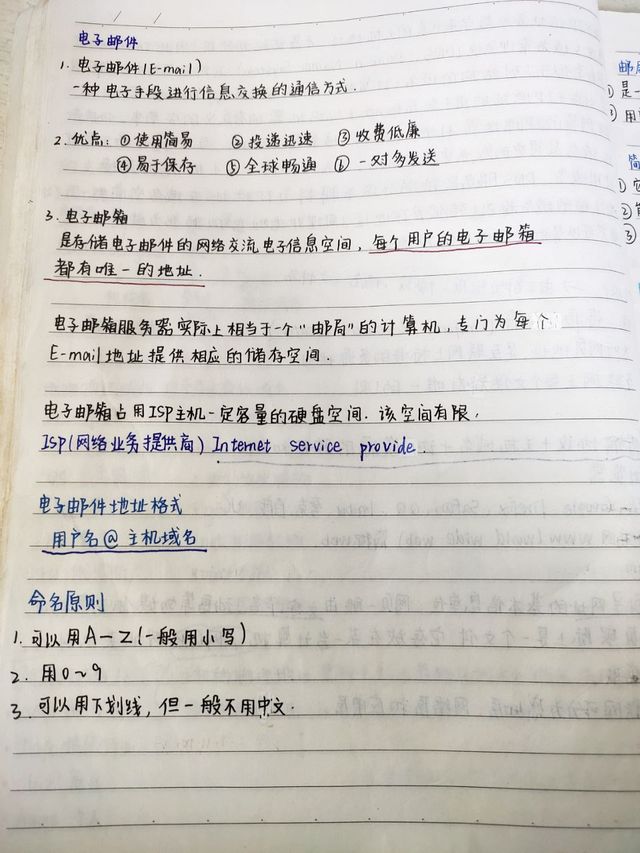 电子邮件
1. 电子邮件(E-mail)
一种电子手段进行信息交换的通信方式.
2. 优点: ①使用简易 ②投递迅速 ③收费低廉
④易于保存 ⑤全球畅通 ⑥一对多发送
3. 电子邮箱
是存储电子邮件的网络交流电子信息空间, 每个用户的电子邮箱
都有唯一的地址.
电子邮箱服务器实际上相当于一个"邮局"的计算机, 专门为每个
E-mail地址提供相应的储存空间.
电子邮箱占用ISP主机一定容量的硬盘空间. 该空间有限,
ISP(网络业务提供商) Internet service provide.
电子邮件地址格式
用户名@主机域名
命名原则
1. 可以用A—Z(一般用小写)
2. 用0~9
3. 可以用下划线, 但一般不用中文.
① 是一
② 用
简
①
②
③